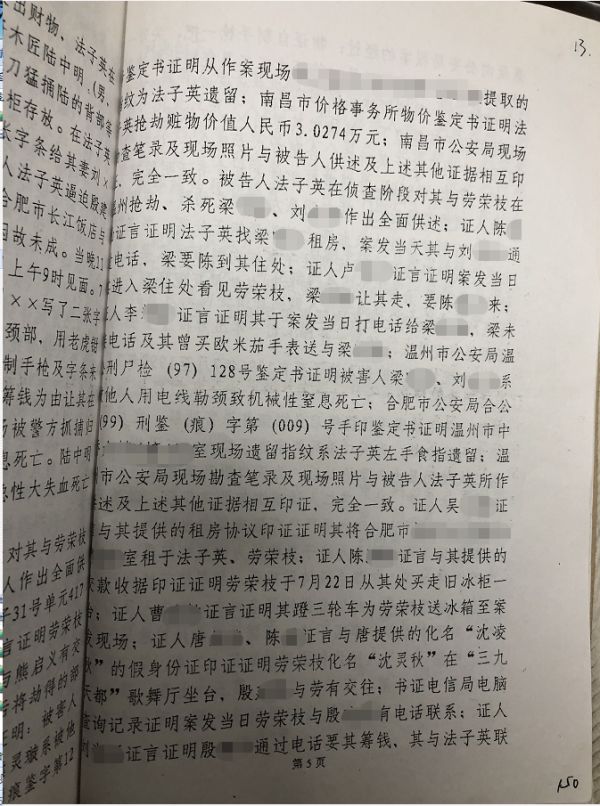 13.
出财物、法子英在
木匠陆中明（男、
刀猛捅陆的背部等
柜存放。在法子英
长字条给其妻刘×
人法子英逼迫殷建
合肥市长江饭店与
因故未成。当晚11
上午9时见面。7
××写了二张字
颈部，用老虎钳
制手枪及字条来
筹钱为由让其在
被警方抓捕归
息死亡。陆中明
急性大失血死亡
对其与劳荣枝
人作出全面供
31号单元417
言证明劳荣枝
与熊启义有交
将劫得的部
明：被害人
灵璇系被他
痕鉴字第12
鉴定书证明从作案现场 提取的
纹为法子英遗留；南昌市价格事务所物价鉴定书证明法
英抢劫赃物价值人民币3.0274万元；南昌市公安局现场
查笔录及现场照片与被告人供述及上述其他证据相互印
完全一致。被告人法子英在侦查阶段对其与劳荣枝在
州抢劫、杀死梁 、刘 作出全面供述；证人陈
证言证明法子英找梁 租房，案发当天其与刘 通
电话，梁要陈到其住处；证人卢 证言证明案发当日
进入梁住处看见劳荣枝，梁 让其走，要陈 来；
人李 证言证明其于案发当日打电话给梁 ，梁未
电话及其曾买欧米茄手表送与梁 ；温州市公安局温
公刑尸检（97）128号鉴定书证明被害人梁 、刘 系
他人用电线勒颈致机械性窒息死亡；合肥市公安局合公
（99）刑鉴（痕）字第（009）号手印鉴定书证明温州市中
室现场遗留指纹系法子英左手食指遗留；温
市公安局现场勘查笔录及现场照片与被告人法子英所作
述及上述其他证据相互印证，完全一致。证人吴 证
与其提供的租房协议印证证明其将合肥市
室租于法子英、劳荣枝；证人陈 证言与其提供的
款收据印证证明劳荣枝于7月22日从其处买走旧冰柜一
台；证人曹 证言证明其蹬三轮车为劳荣枝送冰箱至案
发现场；证人唐 、陈 证言与唐提供的化名“沈凌
秋”的假身份证印证证明劳荣枝化名“沈灵秋”在“三九
天都”歌舞厅坐台，殷 与劳有交往；书证电信局电脑
查询记录证明案发当日劳荣枝与殷 有电话联系；证人
刘 证言证明殷 通过电话要其筹钱、其与法子英联
第5页
150